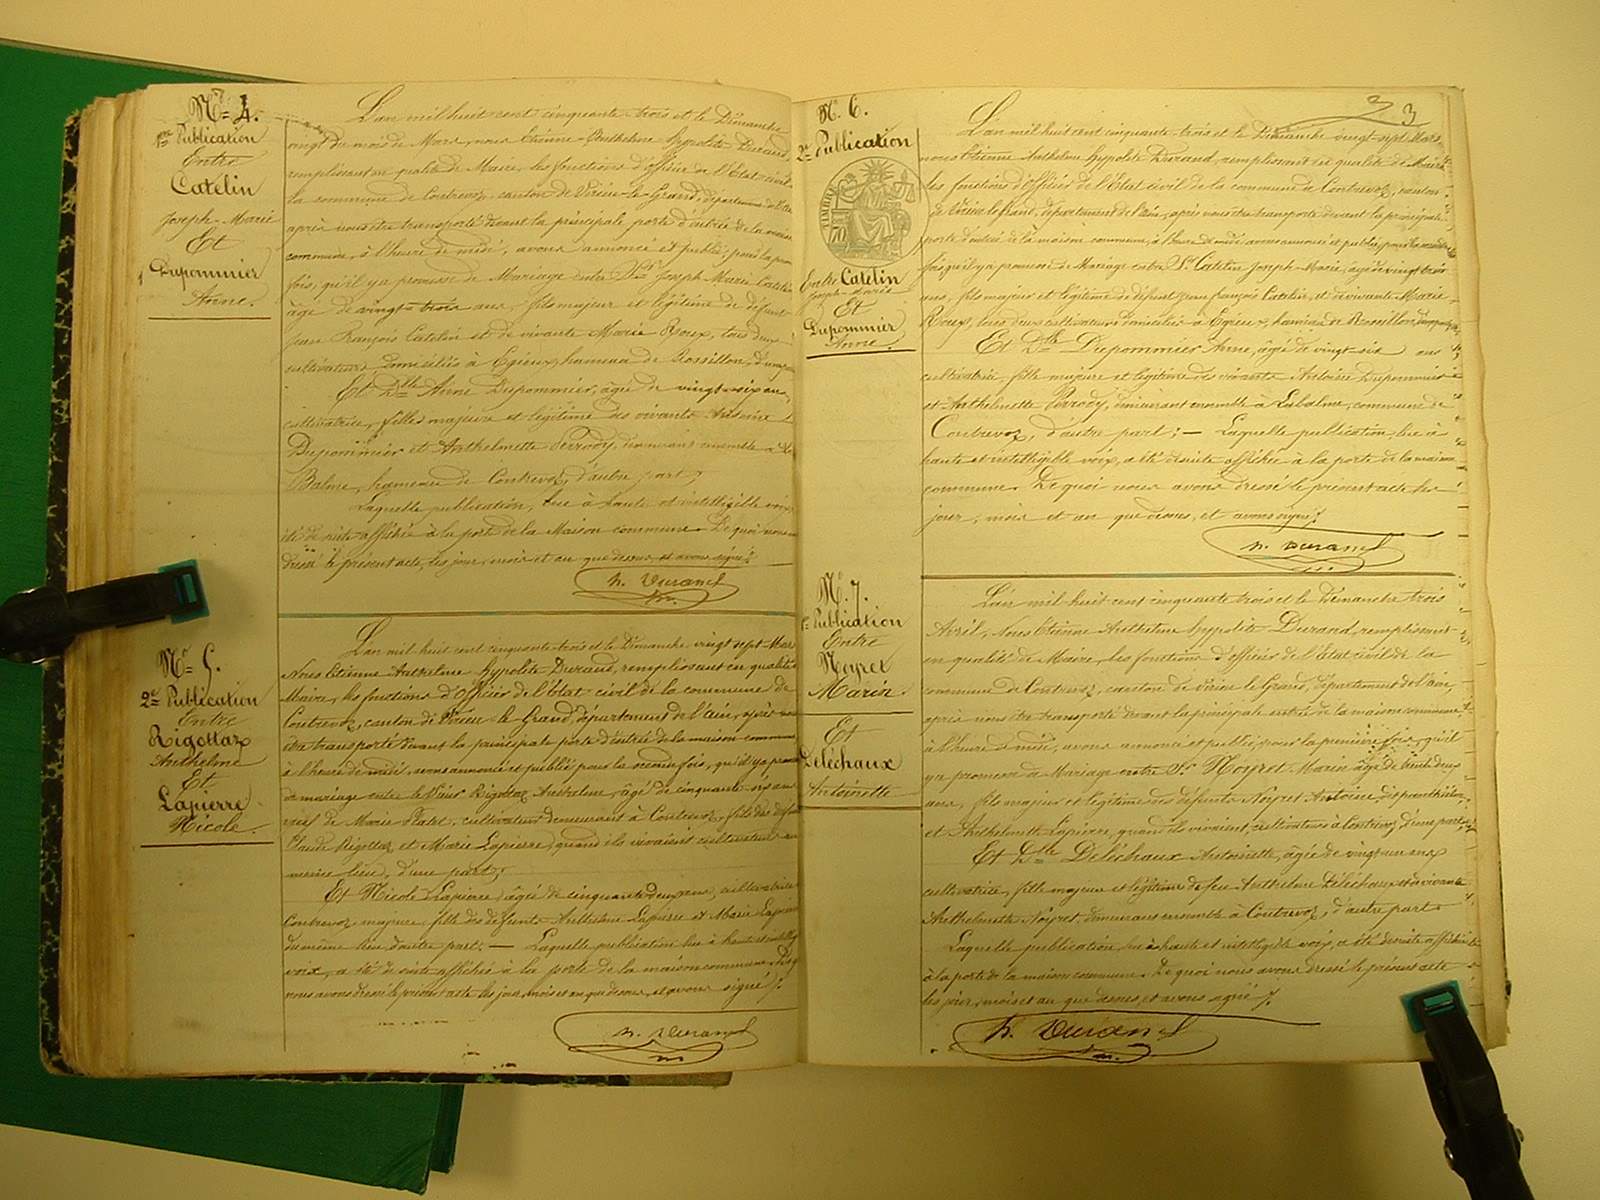 N° 4.
1ère Publication
Entre
Catelin
Joseph-Marie
Et
Dupommier
Anne.
L'an mil huit cent cinquante trois et le Dimanche
vingt du mois de Mars, nous Etienne-Anthelme Hypolite Durand
remplissant en qualité de Maire, les fonctions d'officier de l'Etat civil
la commune de Contrevoz, canton de Virieu-le-Grand, département de l'Ain
après nous être transporté devant la principale porte d'entrée de la maison
commune, à l'heure de midi, avons annoncé et publié pour la
fois, qu'il y a promesse de Mariage entre Sr Joseph Marie Catelin
âgé de vingt-trois ans, fils majeur et légitime de défunt
Jean François Catelin et de vivante Marie Roux, tous deux
cultivateurs domiciliés à Egieux, hameau de Rossillon, d'une
Et Dlle Anne Dupommier, âgée de vingt-six ans,
cultivatrice, fille majeure et légitime des vivants Antoine
Dupommier et Anthelmette Parrody, demeurant ensemble à la
Balme, hameau de Contrevoz, d'autre part,
Laquelle publication, lue à haute et intelligible voix,
été de suite affichée à la porte de la Maison commune. De quoi nous
dressé le présent acte, les jour, mois et an que dessus, et avons signé.
h. Durand
N° 5.
2e Publication
Entre
Rigottaz
Anthelme
Et
Lapierre
Nicole.
L'an mil huit cent cinquante-trois et le Dimanche vingt sept Mars
Nous Etienne Anthelme Hypolite Durand, remplissant en qualité
Maire, les fonctions d'Officier de l'Etat civil de la commune de
Contrevoz, canton de Virieu le Grand, département de l'ain, après
être transporté devant la principale porte d'entrée de la maison commune
à l'heure de midi, avons annoncé et publié pour la seconde fois, qu'il y a promesse
de mariage entre le Sieur Rigottaz Anthelme, âgé de cinquante-six ans
veuf de Marie Tatet, cultivateur demeurant à Contrevoz, fils des défunts
Claude Rigottaz et Marie Lapierre, quand ils vivaient cultivateurs au
même lieu, d'une part,
Et Nicole Lapierre, âgée de cinquante deux ans, cultivatrice
Contrevoz majeure, fille des défunts Anthelme Lapierre et Marie Lapierre
du même lieu d'autre part; — Laquelle publication lue à haute et intelligible
voix, a été de suite affichée à la porte de la maison commune. De quoi
nous avons dressé le présent acte les jour, mois et an que dessus, et avons signé.
h. Durand
3
N° 6.
2e Publication
TIMBRE
70
Entre Catelin
Joseph-Marie
Et
Dupommier
Anne.
L'an mil huit cent cinquante-trois et le Dimanche vingt-sept Mars
nous Etienne Anthelme Hypolite Durand, remplissant en qualité de Maire
les fonctions d'Officier de l'Etat civil de la commune de Contrevoz, canton
de Virieu le Grand, département de l'ain, après nous être transporté devant la principale
porte d'entrée de la maison commune, à l'heure de midi, avons annoncé et publié, pour la seconde
fois qu'il y a promesse de Mariage entre Sr Catelin Joseph-Marie, âgé de vingt trois
ans, fils majeur et légitime de défunt Jean françois Catelin, et de vivante Marie
Roux, tous deux cultivateurs domiciliés à Egieux, hameau de Rossillon, d'une part,
Et Dlle Dupommier Anne, âgée de vingt-six ans
cultivatrice, fille majeure et légitime des vivants Antoine Dupommier
et Anthelmette Parrody, demeurant ensemble à Labalme, commune de
Contrevoz, d'autre part; — Laquelle publication, lue à
haute et intelligible voix, a été de suite affichée à la porte de la maison
commune. De quoi nous avons dressé le présent acte les
jour, mois et an que dessus, et avons signé.
h. Durand
N° 7.
1e Publication
Entre
Noyret
Marin.
Et
Deléchaux
Antoinette
L'an mil huit cent cinquante trois et le Dimanche trois
Avril, Nous Etienne Anthelme Hypolite Durand, remplissant
en qualité de Maire, les fonctions d'officier de l'Etat civil de la
commune de Contrevoz, canton de Virieu le Grand, département de l'ain,
après nous être transporté devant la principale entrée de la maison commune,
à l'heure de midi, avons annoncé et publié, pour la première fois, qu'il
y a promesse de Mariage entre Sr Noyret Marin âgé de trente deux
ans, fils majeur et légitime des défunts Noyret Antoine
et Anthelmette Lapierre, quand ils vivaient, cultivateurs à Contrevoz d'une part
Et Dlle Deléchaux Antoinette, âgée de vingt un ans
cultivatrice, fille majeure et légitime de feu Anthelme Deléchaux et de vivante
Anthelmette Noyret, demeurans ensemble à Contrevoz, d'autre part.
Laquelle publication, lue à haute et intelligible voix, a été de suite affichée
à la porte de la maison commune. De quoi nous avons dressé le présent acte
les jour, mois et an que dessus, et avons signé.
h. Durand